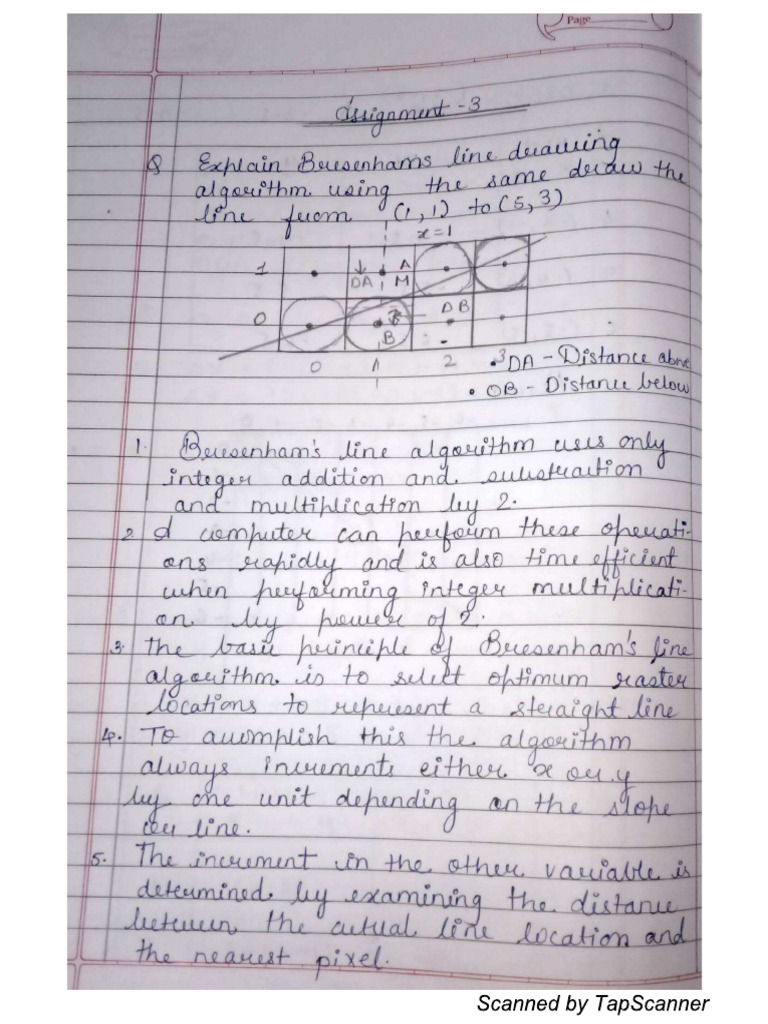 Page
Assignment - 3
Q Explain Bresenhams line drawing
algorithm using the same draw the
line from (1,1) to (5,3)
x=1
1 DA A M
0 B DB
0 1 2 3
• DA - Distance above
• DB - Distance below
1. Bresenham's line algorithm uses only
integer addition and substraction
and multiplication by 2.
2. A computer can perform these operati-
ons rapidly and is also time efficient
when performing integer multiplicati-
on by power of 2.
3. The basic principle of Bresenham's line
algorithm is to select optimum raster
locations to represent a straight line
4. To accomplish this the algorithm
always increments either x or y
by one unit depending on the slope
or line.
5. The increment in the other variable is
determined by examining the distance
between the actual line location and
the nearest pixel.
Scanned by TapScanner